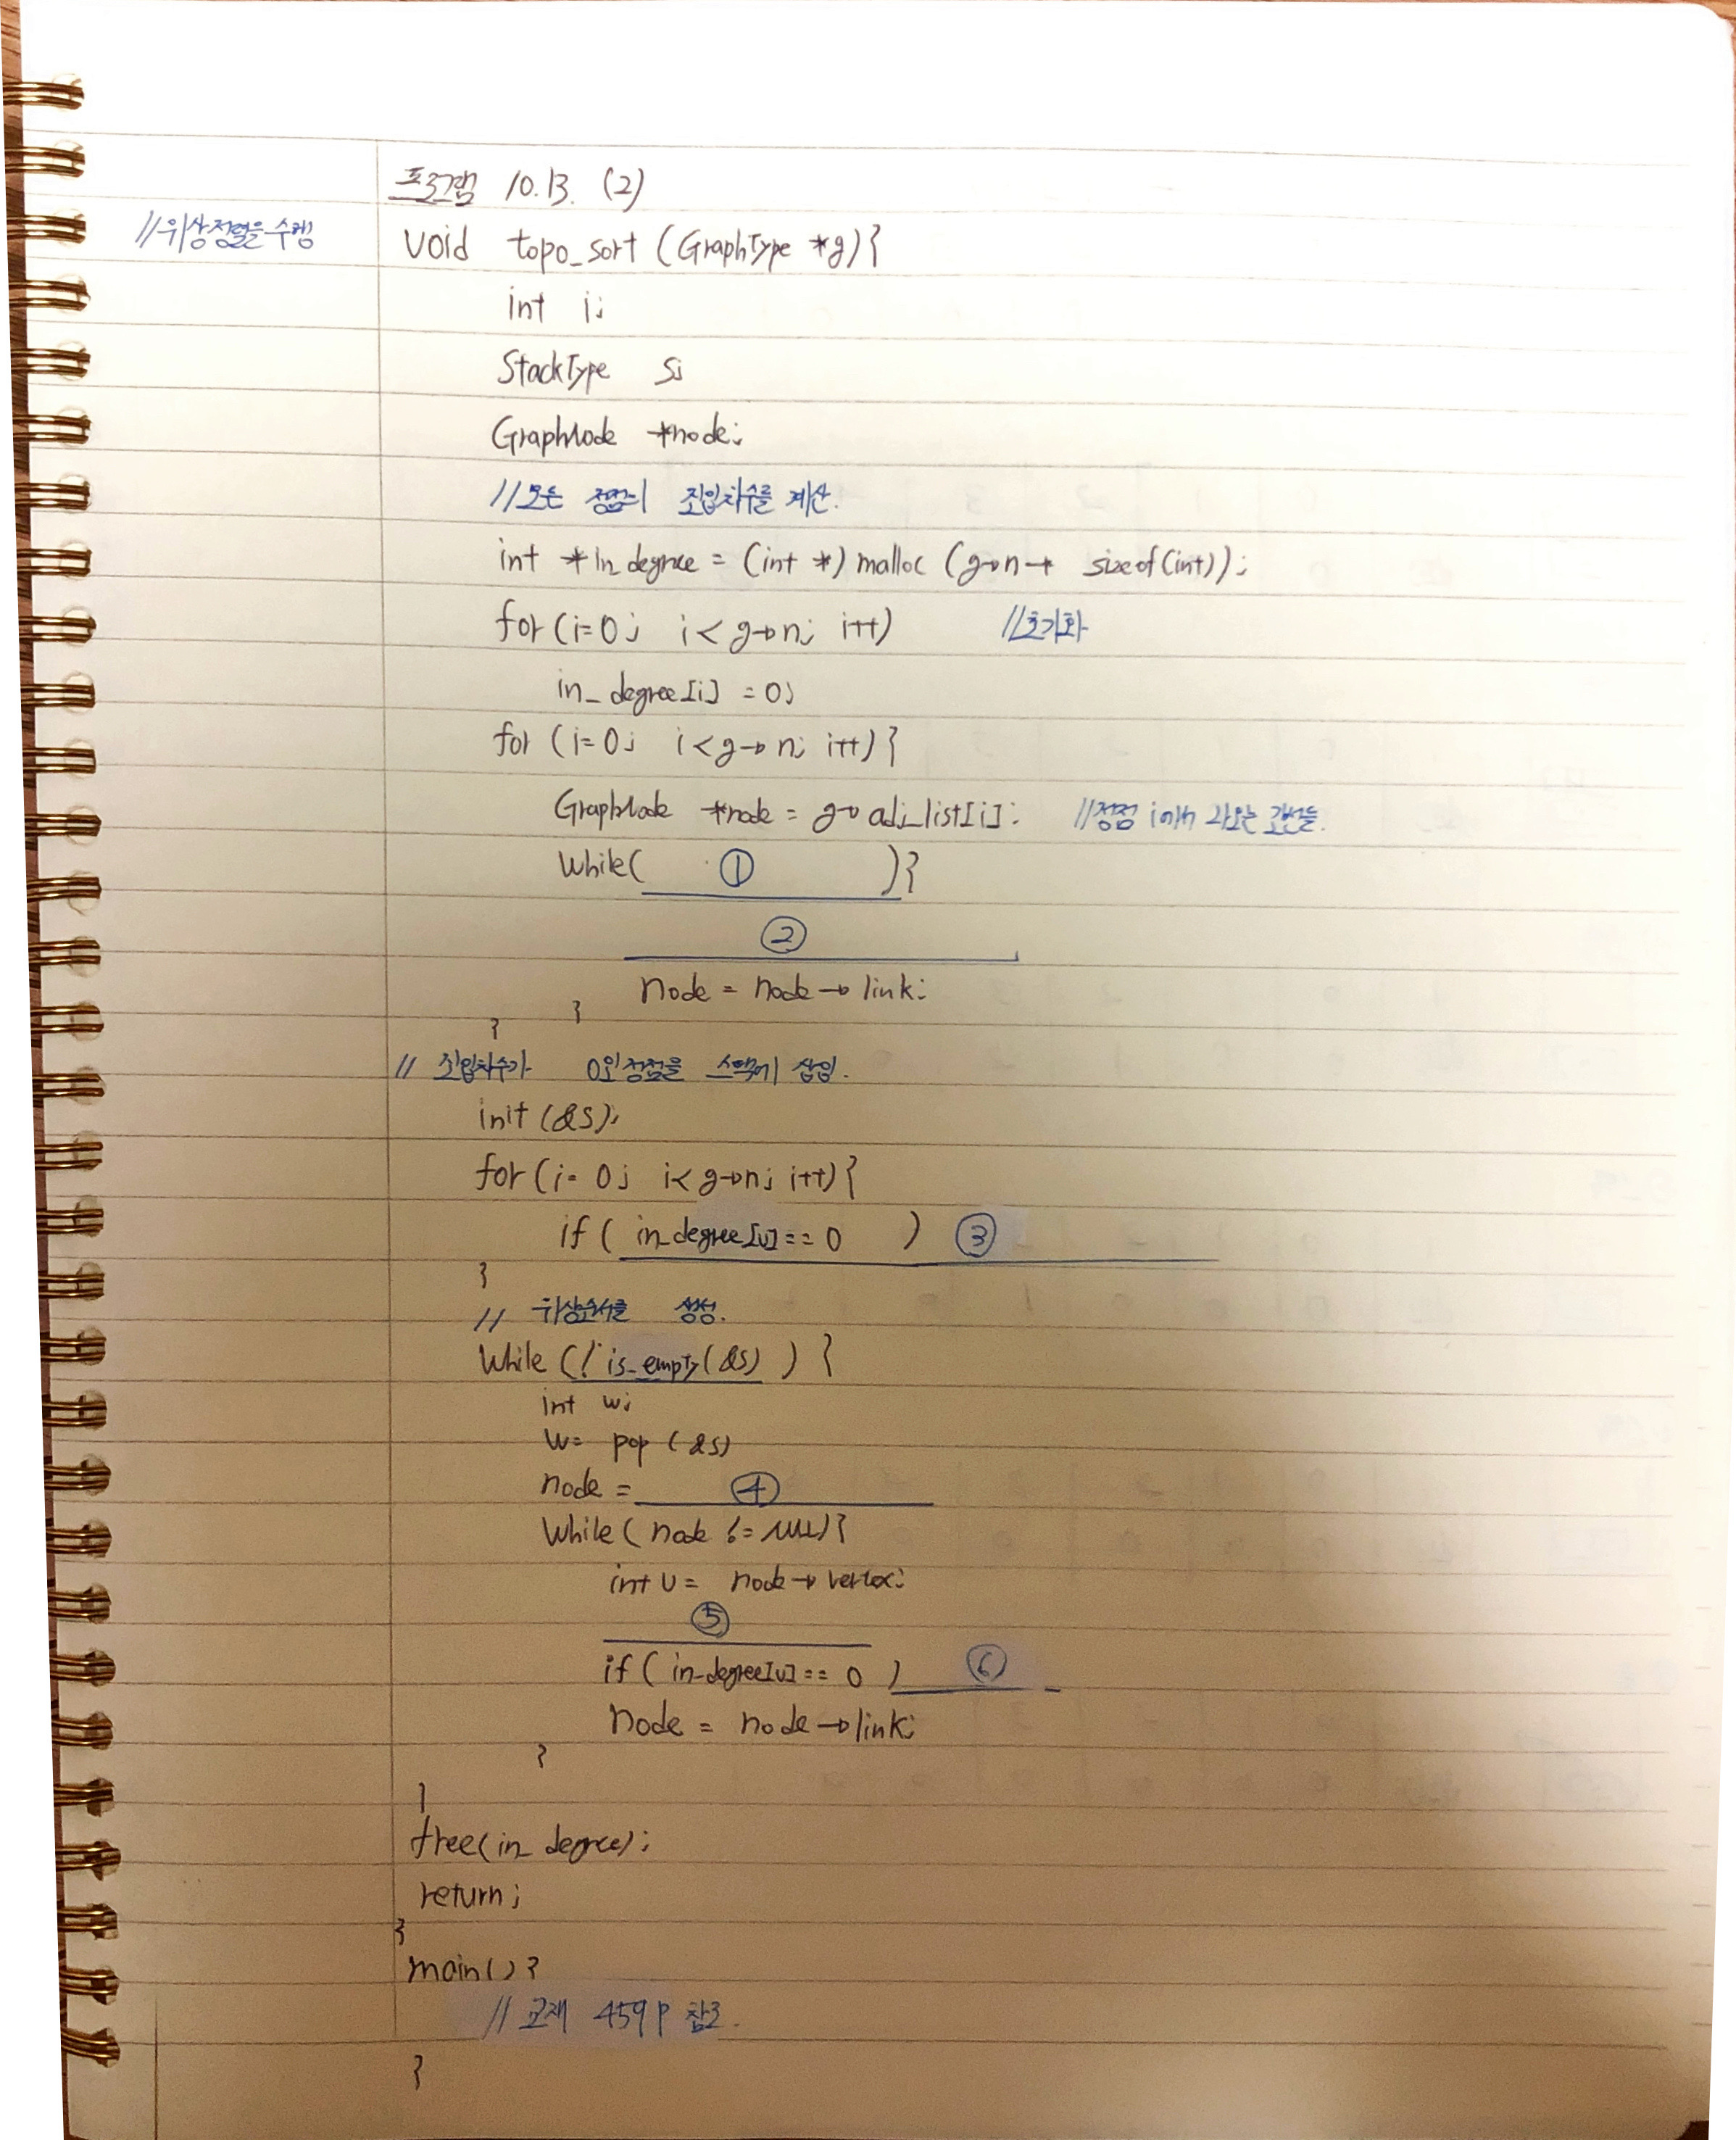 프로그램 10.13. (2)
//위상정렬을 수행
void topo_sort (GraphType *g){
int i;
StackType s;
GraphNode *node;
//모든 정점의 진입차수를 계산.
int *in_degree = (int *) malloc (g→n* sizeof(int));
for (i=0; i<g→n; i++) //초기화
in_degree[i] = 0;
for (i=0; i<g→n; i++){
GraphNode *node = g→adj_list[i]; //정점 i에서 나오는 간선들.
while( ① ){
②
node = node→link;
}
}
// 진입차수가 0인 정점을 스택에 삽입.
init (&s);
for (i=0; i<g→n; i++){
if ( in_degree[v] == 0 ) ③
}
// 위상순서를 생성.
while (! is_empty(&s) ) {
int w;
w= pop (&s)
node = ④
while ( node != NULL){
int u = node→vertex;
⑤
if ( in-degree[u] == 0 ) ⑥
node = node→link;
}
}
free(in_degree);
return;
}
main(){
// 교재 459p 참고.
}